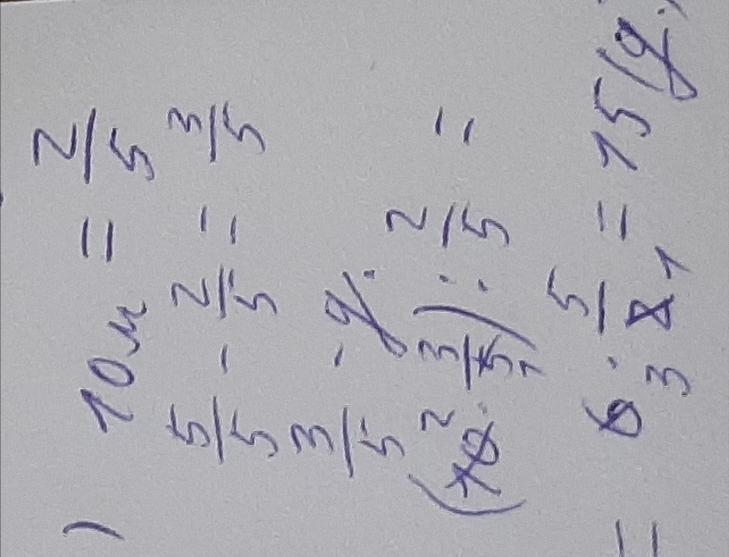 ) 10м = 2/5
5/5 - 2/5 = 3/5
3/5 - g.
(10 · 3/5) : 2/5 =
= 6 · 5/2 = 15 (g.)